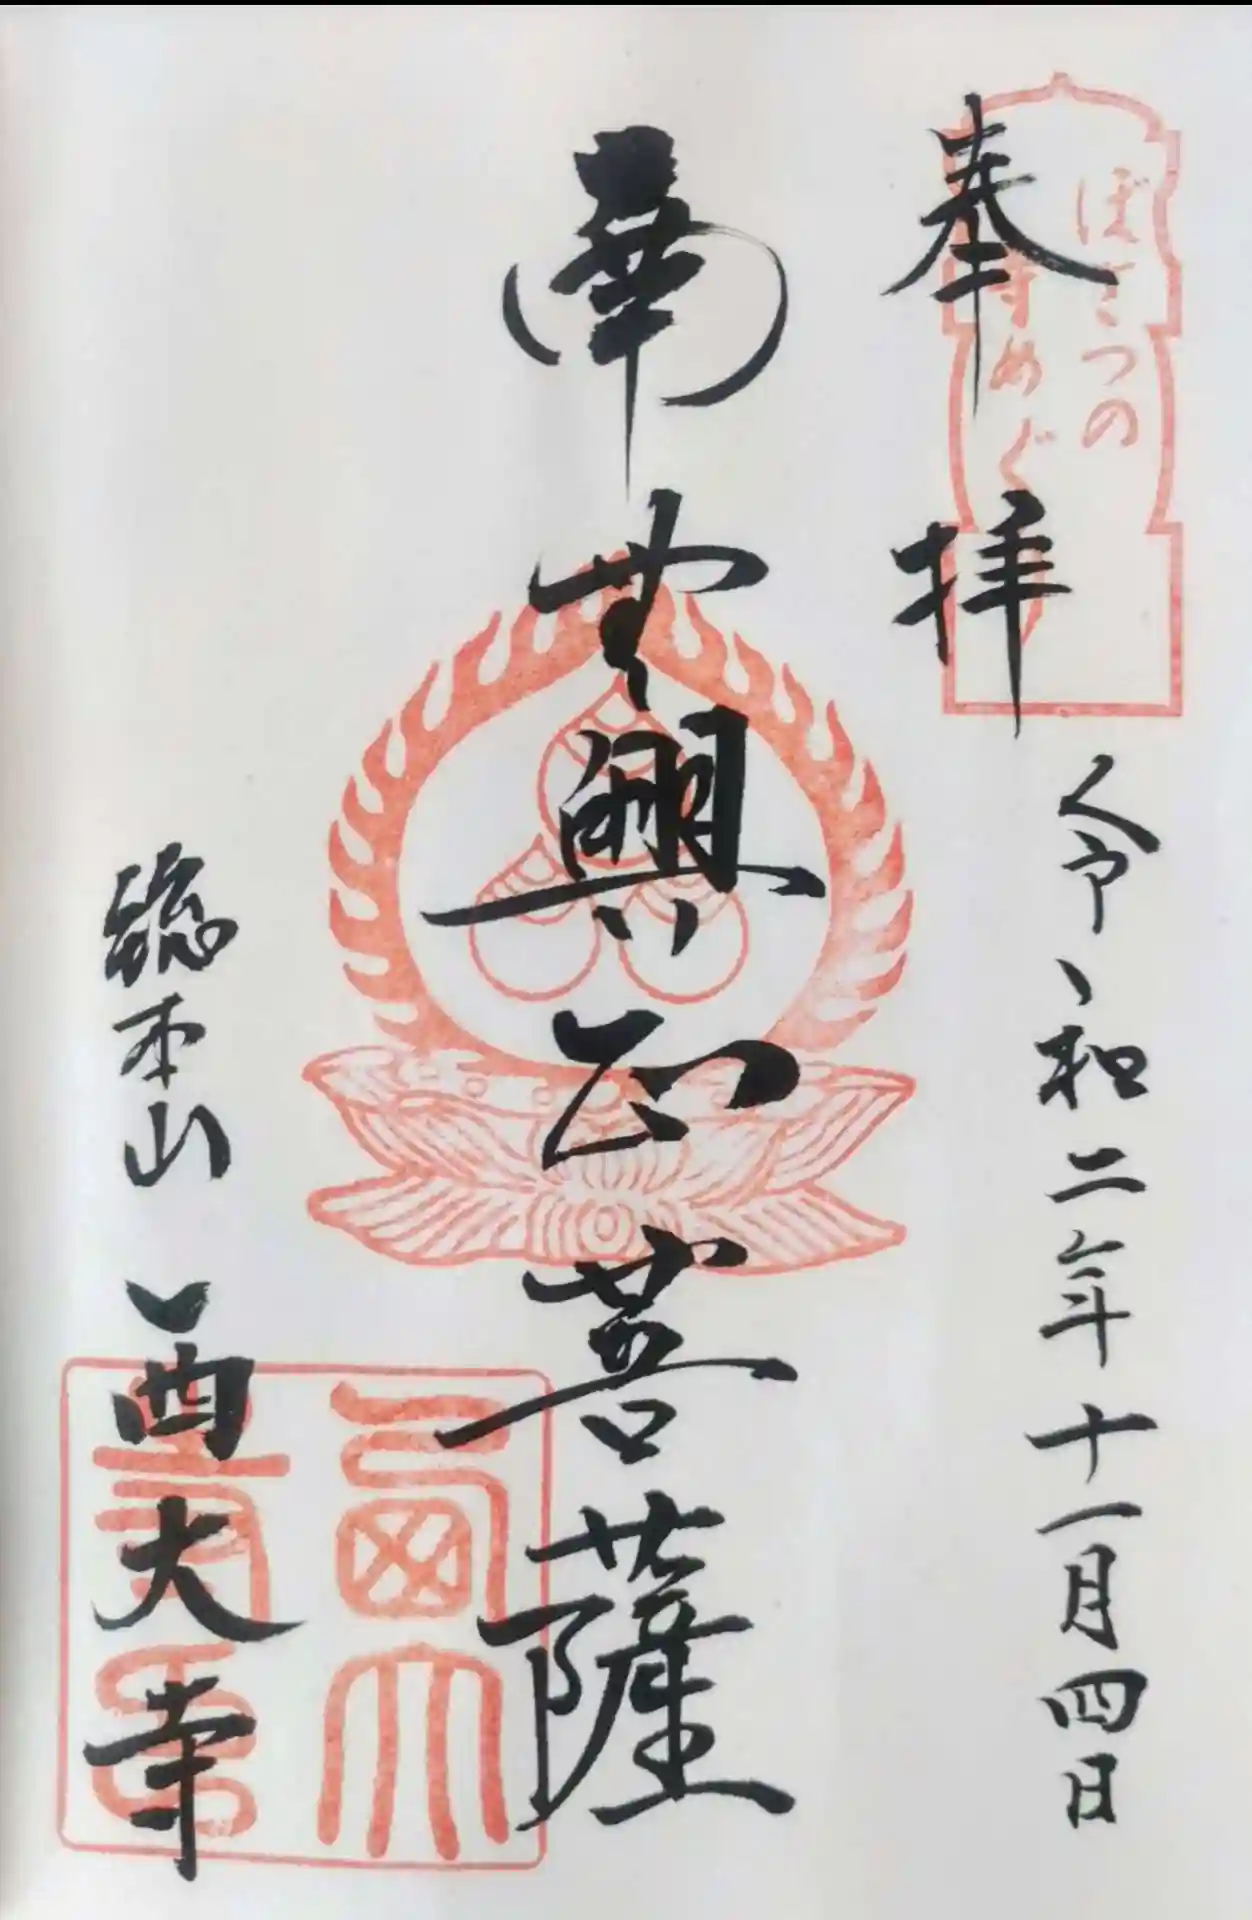 奉拝
ぼさつの
寺めぐり
令和二年十一月四日
南無興正菩薩
總本山
西大寺
西大寺印